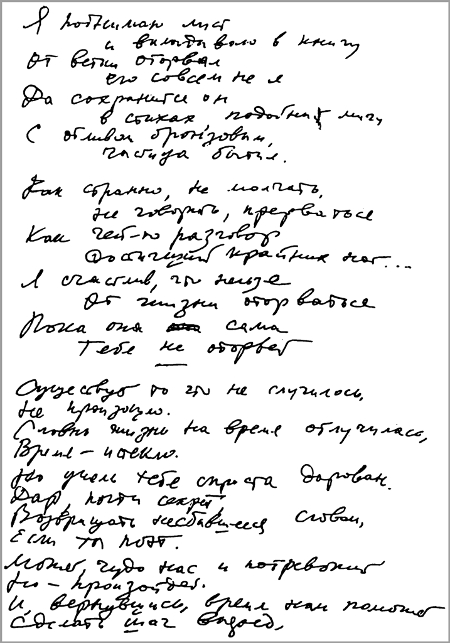 Я поднимаю лист
и вкладываю в книгу
От ветки оторвал
его совсем не я
Да сохранится он
в стихах, подобный мигу
С отливом бронзовым,
частица бытия.
Как странно, не молчать,
не говорить, прерваться
Как чей-то разговор
Достигший крайних нот...
Я счастлив, что нельзя
От жизни оторваться
Пока она сама
Тебя не оторвёт
Существуй то что не случилось,
не произошло.
Словно жизнь на время отлучилась,
Время - истекло.
Но удел тебе спроста дарован.
Дар, почти секрет
Возвращать несбывшееся словом,
Если ты поэт.
Может, чудо нас и потревожит
Но - произойдёт.
И, вернувшись, время нам поможет
Сделать шаг вперёд.